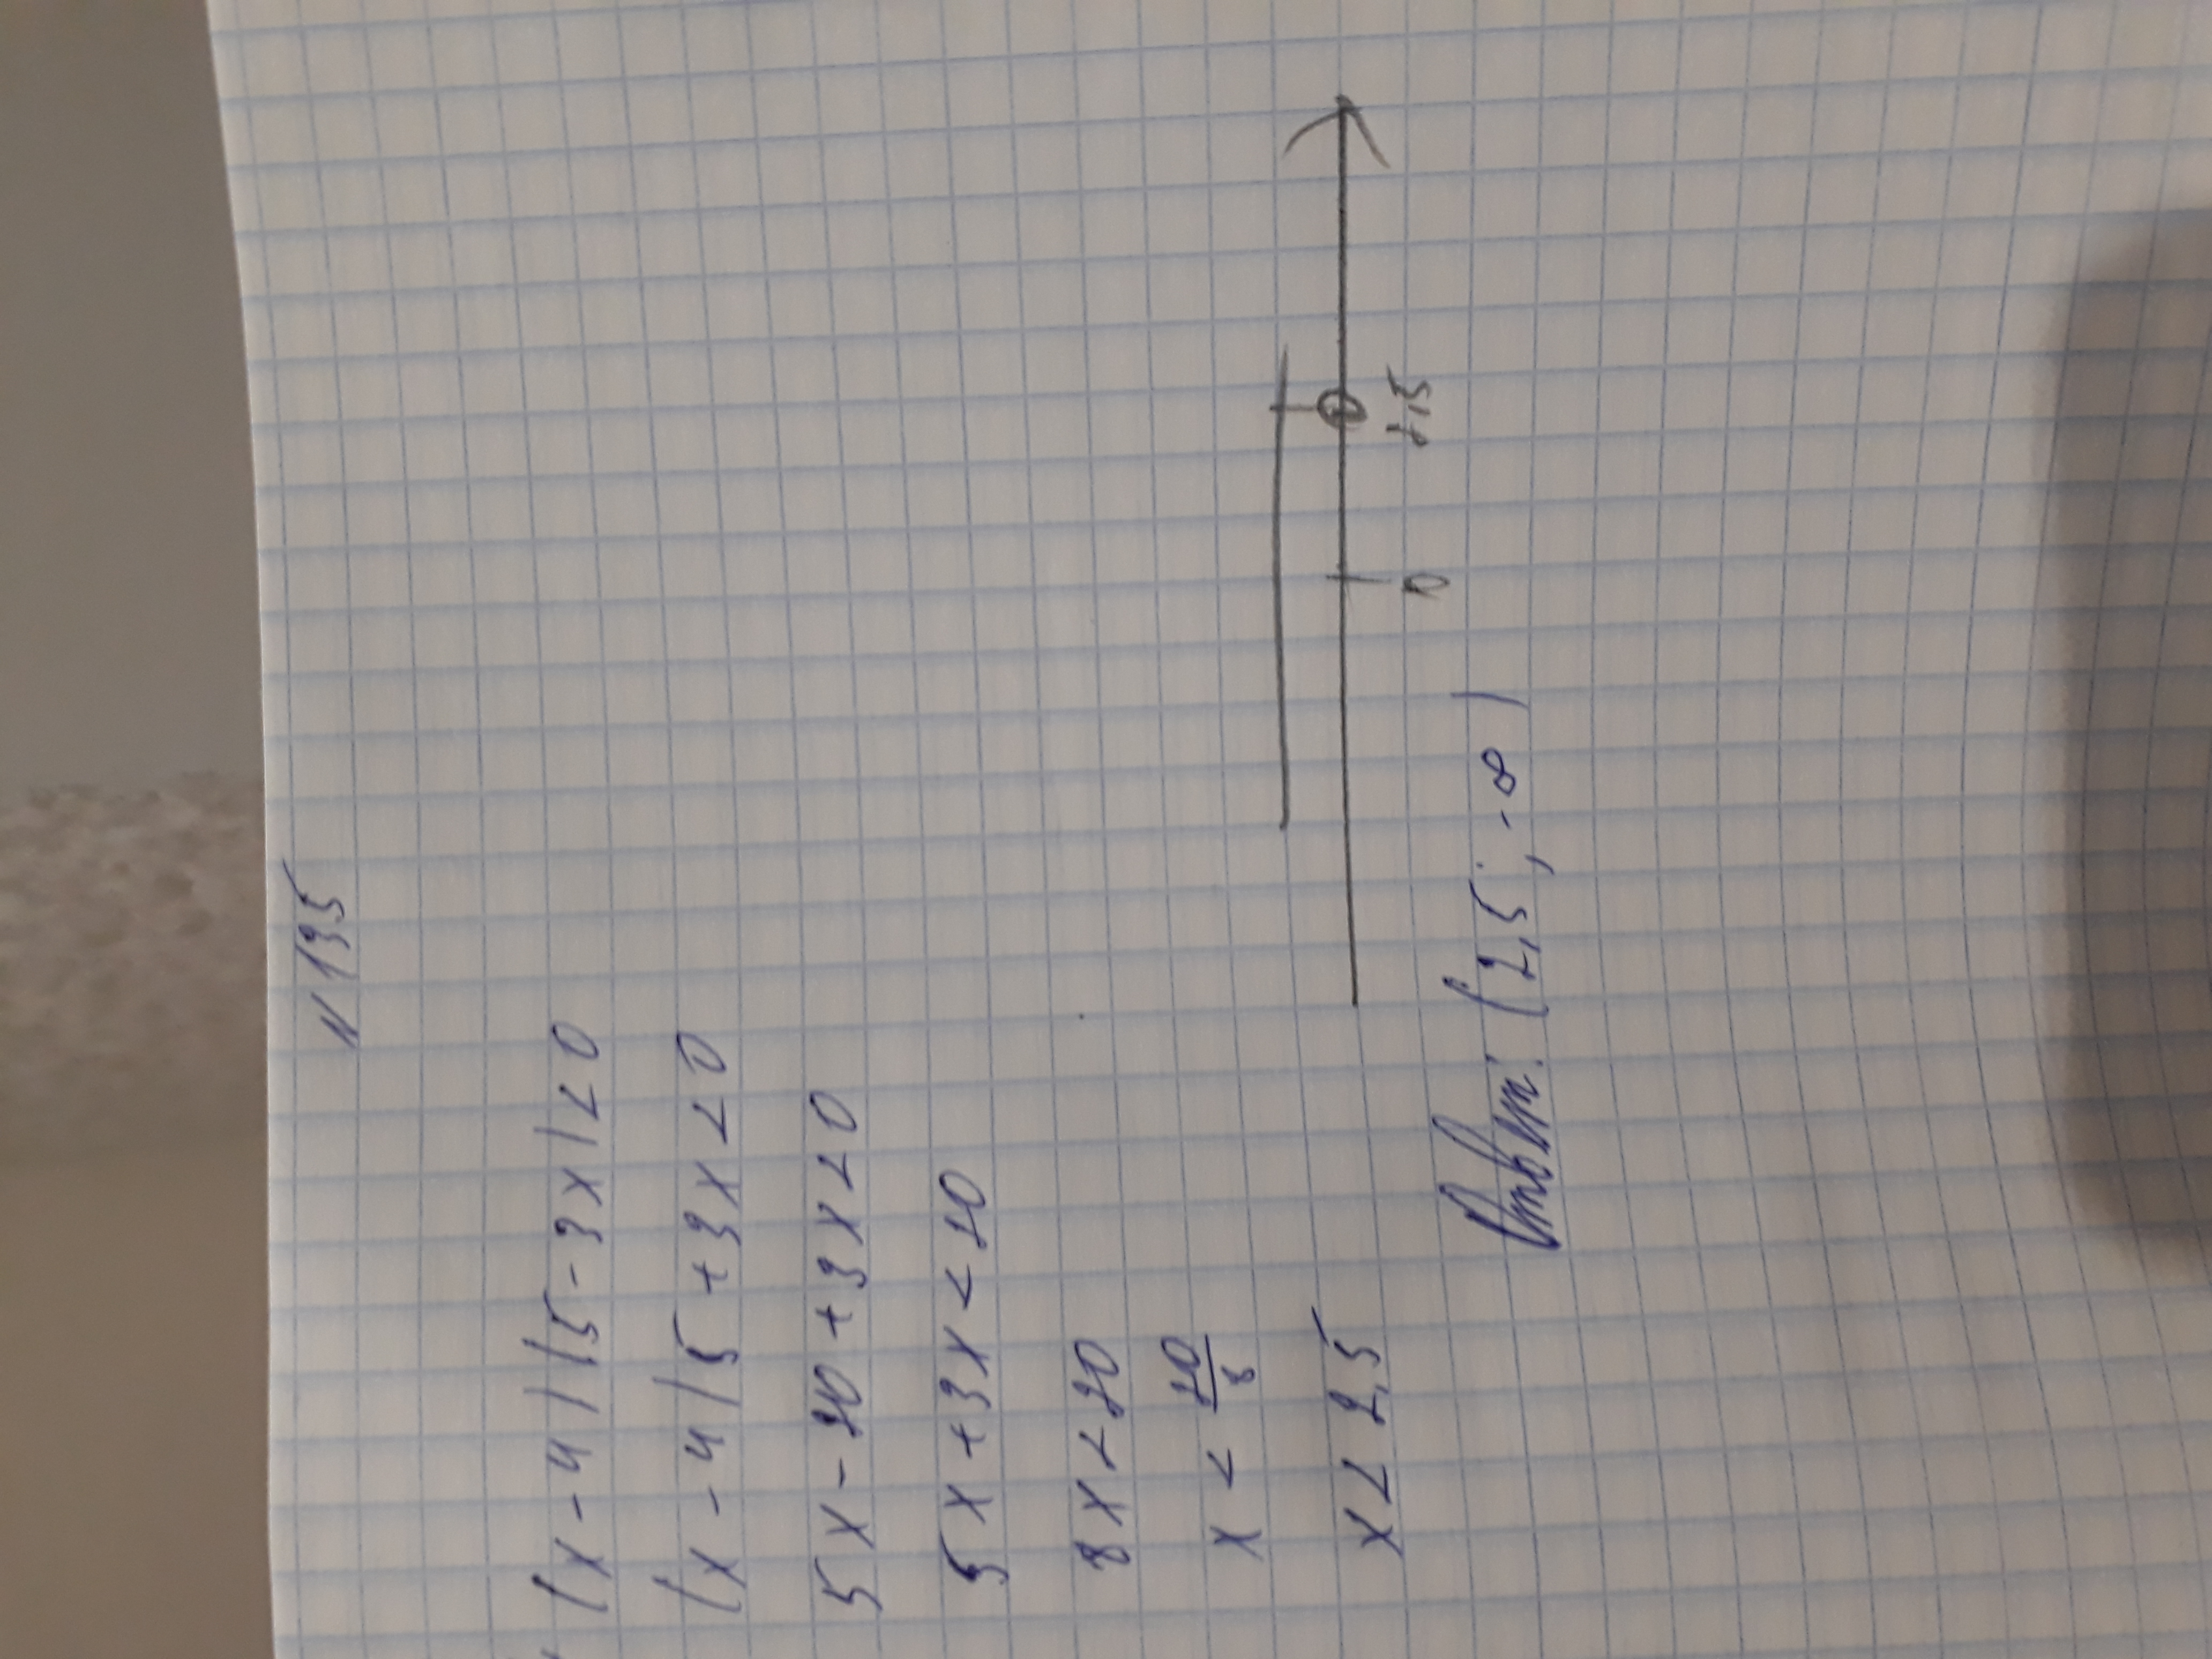 N 195
(x - 4)(5 - 3x) < 0
(x - 4)5 + 3x < 0
5x - 20 + 3x < 0
5x + 3x < 20
8x < 20
x < 20/8
x < 2,5
0 2,5
Ответ: (2,5; -∞)